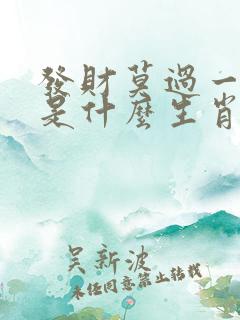 發財莫過一
是什麼生肖
吴新波
未经同意禁止转载